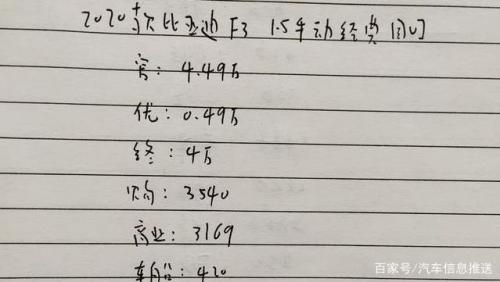 2020款比亚迪F3 1.5手动经典[国V]
官：4.49万
优：0.49万
终：4万
购：3540
商业：3169
车船：420
百家号/汽车信息推送